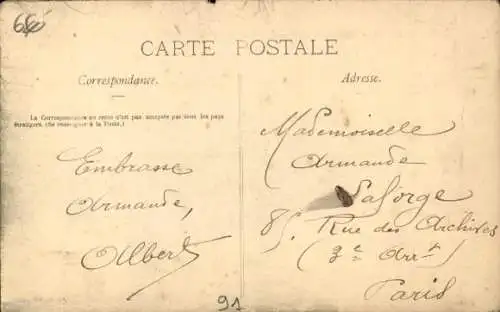 CARTE POSTALE
Correspondance.
Adresse.
La Correspondance au recto n'est pas acceptée par tous les pays
étrangers. (Se renseigner à la Poste.)
Embrasse
Armande,
Albert
Mademoiselle
Armande
Laforge
85, Rue des Archives
(3e Arrt)
Paris
91